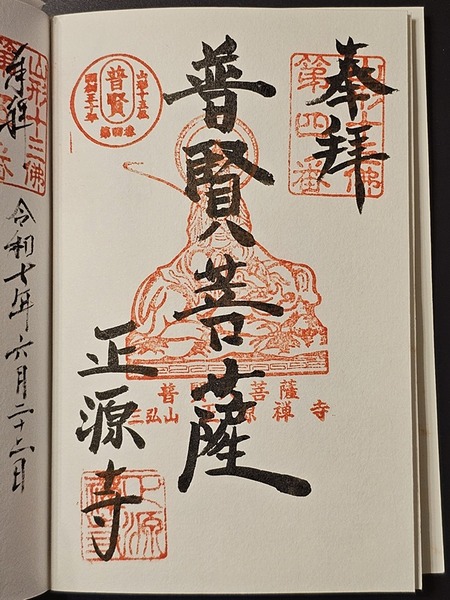 奉拝
山形十三佛
第四番
普賢菩薩
普賢
山形十三佛
開創五十年
第四番
普 菩薩
三弘山 源禅寺
正源寺
正源
奉拝
山形十三佛
令和七年六月二十二日